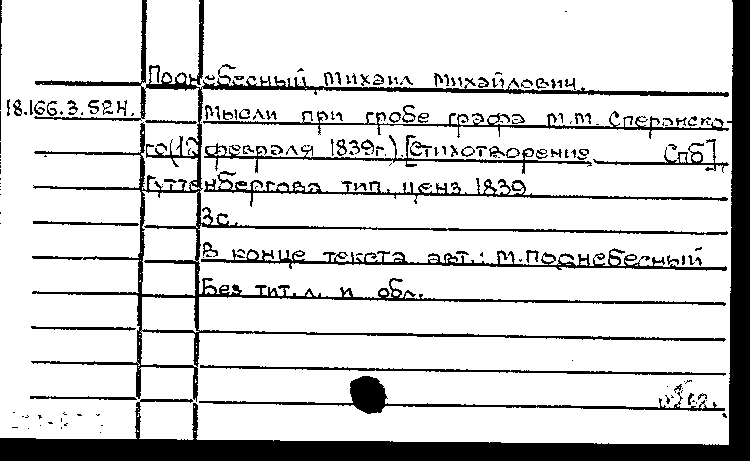 Поднебесный, Михаил Михайлович.
18.166.3.524. Мысли при гробе графа М.М. Сперанско-
го (12 февраля 1839г.) [Стихотворение, Спб],
Гуттенбергова тип., ценз. 1839
3с.
В конце текста авт.: М.Поднебесный
Без тит. л. и обл.